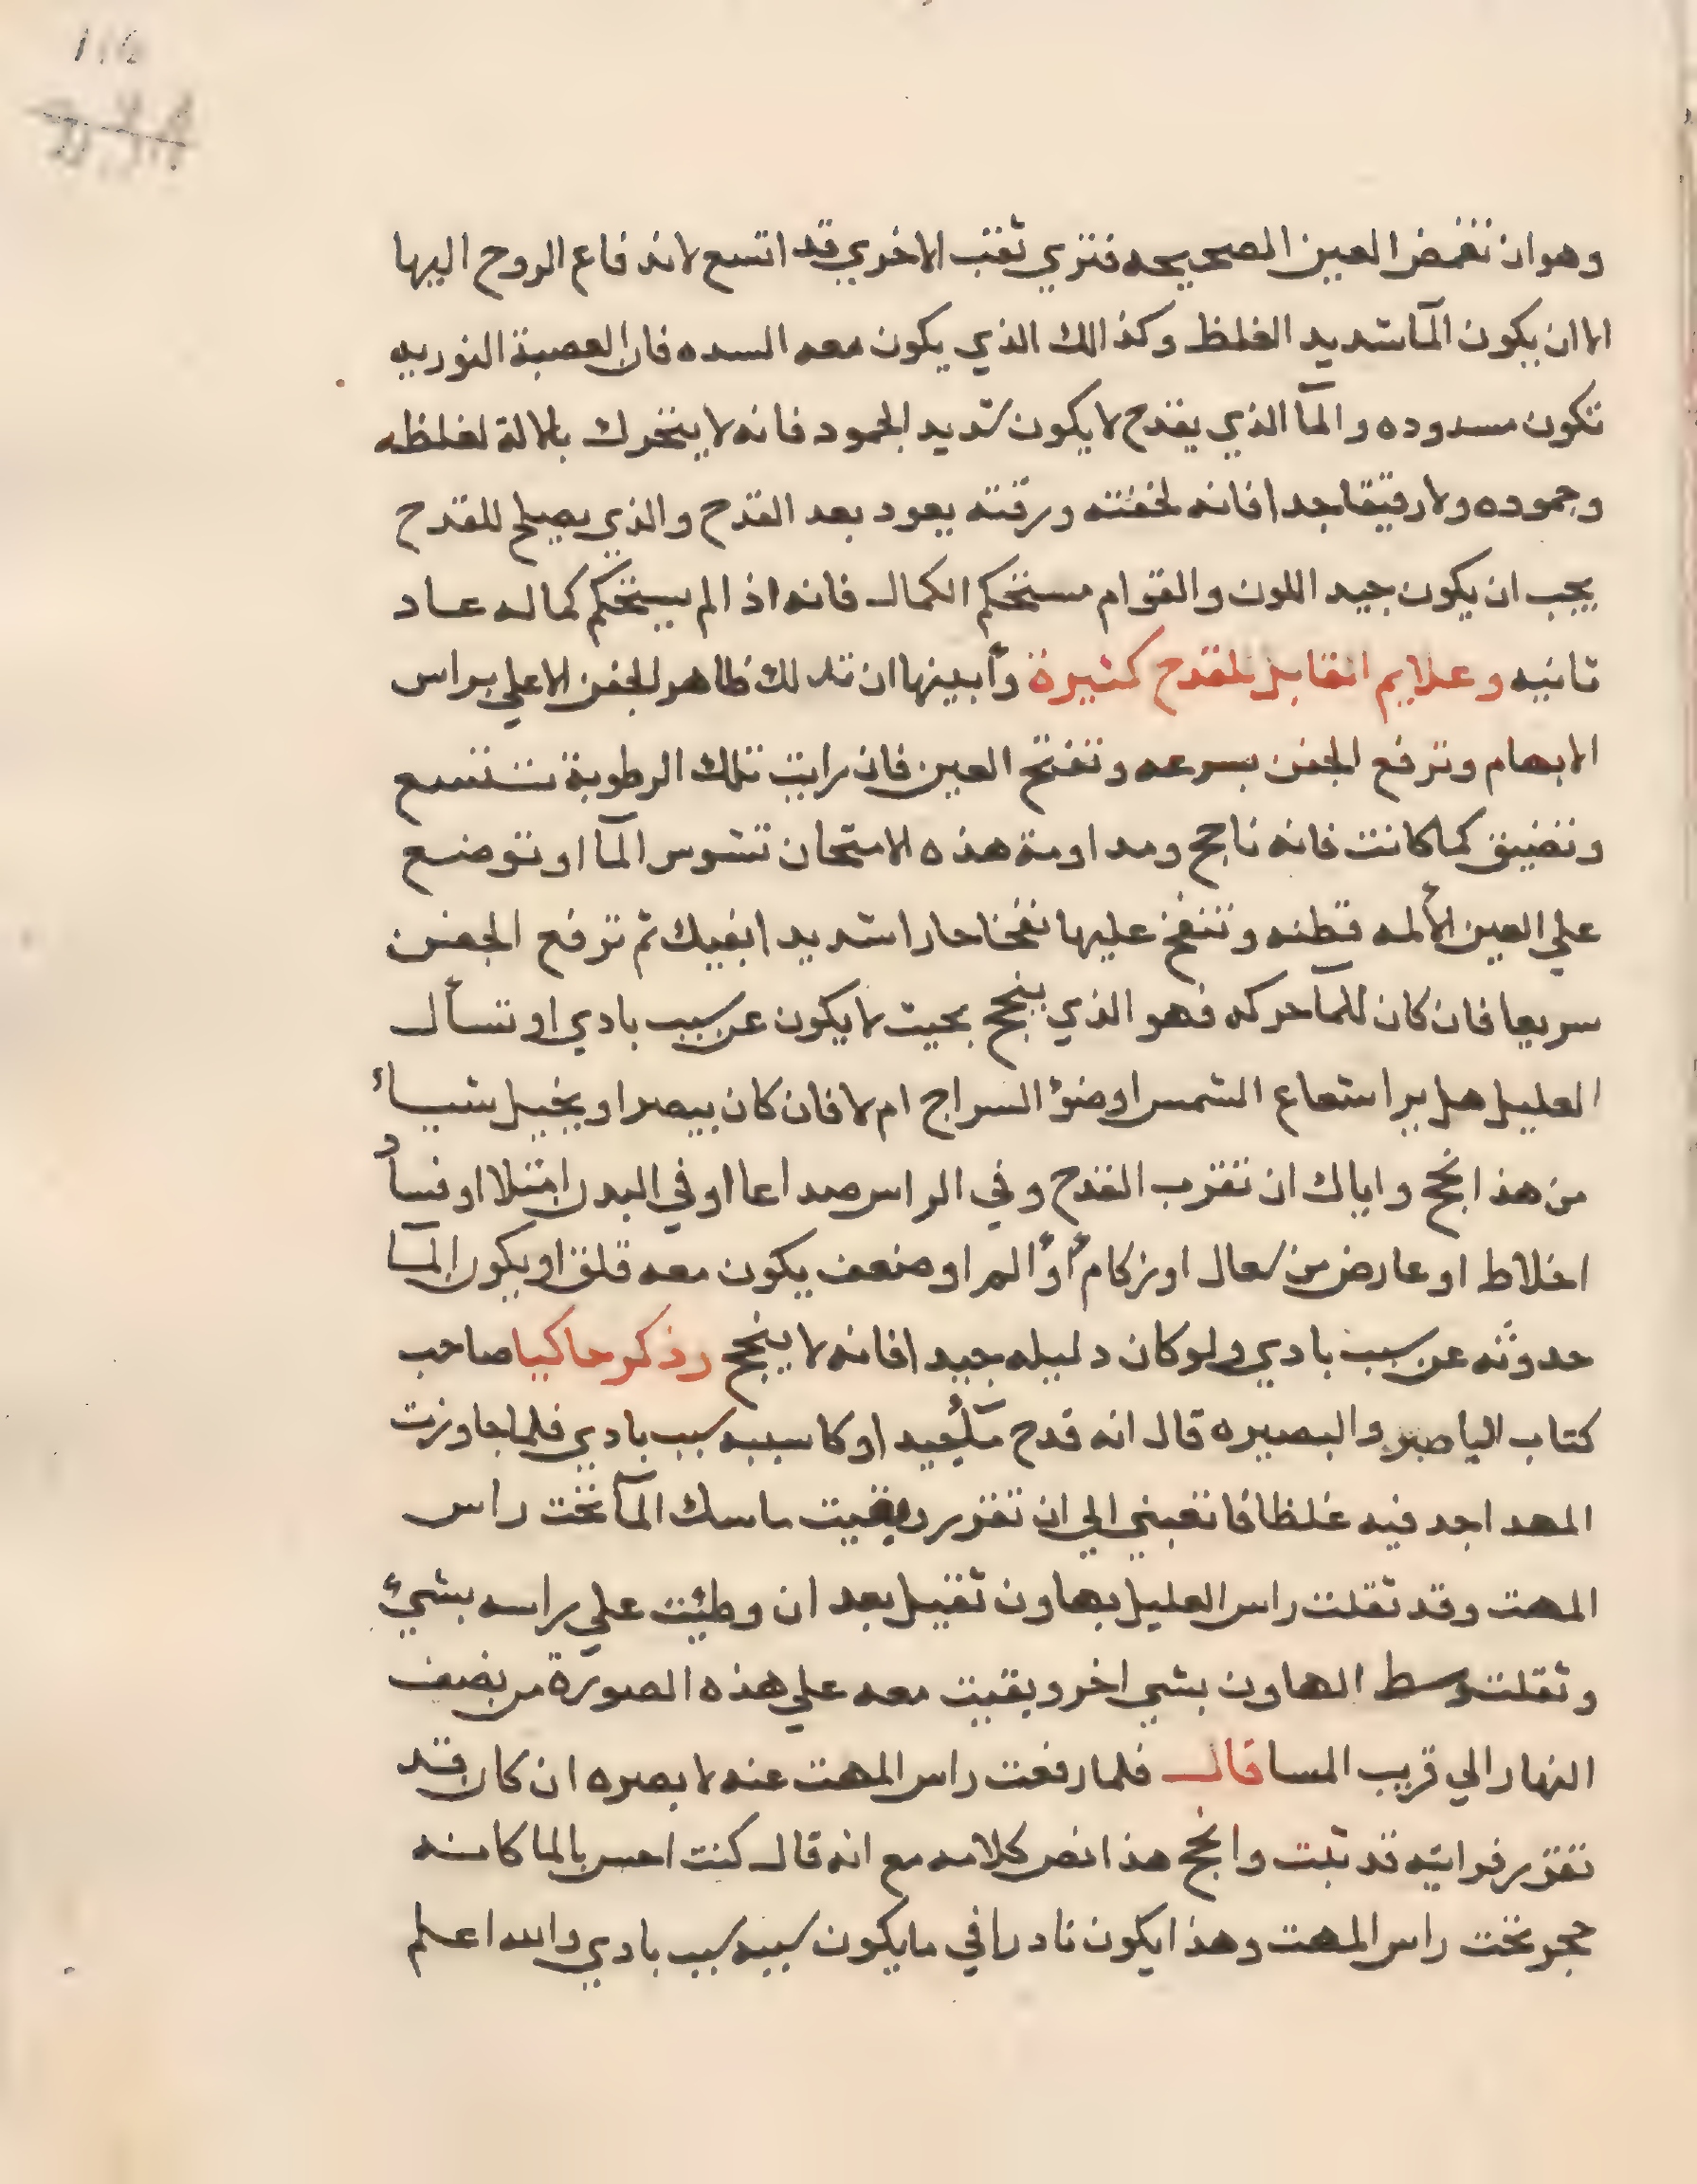 وهو ان تغمض العين الصحيحه فتري ثقب الاخري قد اتسع لاندفاع الروح اليها
الا ان يكون المآ شديد الغلظ وكذالك الذي يكون معه السده فان العصبة النوريه
تكون مسدوده والمآ الذي يقدح لا يكون شديد الجمود فانه لا يتحرك بالالة لغلظه
وجموده ولا رقيقا جدا فانه لخفته ورقته يعود بعد القدح والذي يصلح للقدح
يجب ان يكون جيد اللون والقوام مستحكم الكمال فانه اذا لم يستحكم كماله عاد
ثانيه وعلايم القابل للقدح كثيرة وأبينها ان تدلك ظاهر الجفن الاعلي براس
الابهام وترفع الجفن بسرعه وتفتح العين فان رايت تلك الرطوبة تتسع
وتضيق كما كانت فانه ناجح ومداومة هذه الامتحان تشوس المآ او توضع
علي العين الألمه قطنه وتنفخ عليها نفخا حارا شديدا بفيك ثم ترفع الجفن
سريعا فان كان للمآ حركه فهو الذي ينجح بحيث لا يكون عن سبب بادي او تسأل
العليل هل يرا شعاع الشمس او ضؤ السراج ام لا فان كان يبصر او يخيل شياء
من هذا نجح واياك ان تقرب القدح وفي الراس صداعا او في البدن امتلا او فساد
اخلاط او عارض من سعال او زكام أو ألم او ضعف يكون معه قلق او يكون المآ
حدوثه عن سبب بادي ولو كان دليله جيدا فانه لا ينجح وذكر حاكيا صاحب
كتاب الباصر والبصيره قال انه قدح مآ جيد او كا سببه سبب بادي فلما جاوزت
المهد اجد فيه غلظا فاتعبني الي ان تقور وبقيت ماسك المآ تحت راس
المهت وقد ثقلت راس العليل بهاون ثقيل بعد ان وطيت علي راسه بشيء
وثقلت وسط الهاون بشي اخر وبقيت معه علي هذه الصورة من نصف
النهار الي قريب المسا قال فلما رفعت راس المهت عنه لابصره ان كان قد
تقور فرايته قد ثبت وانجح هذا نص كلامه مع انه قال كنت احس بالما كانه
حجر تحت راس المهت وهذا يكون نادرا في ما يكون سببه سبب بادي والله اعلم